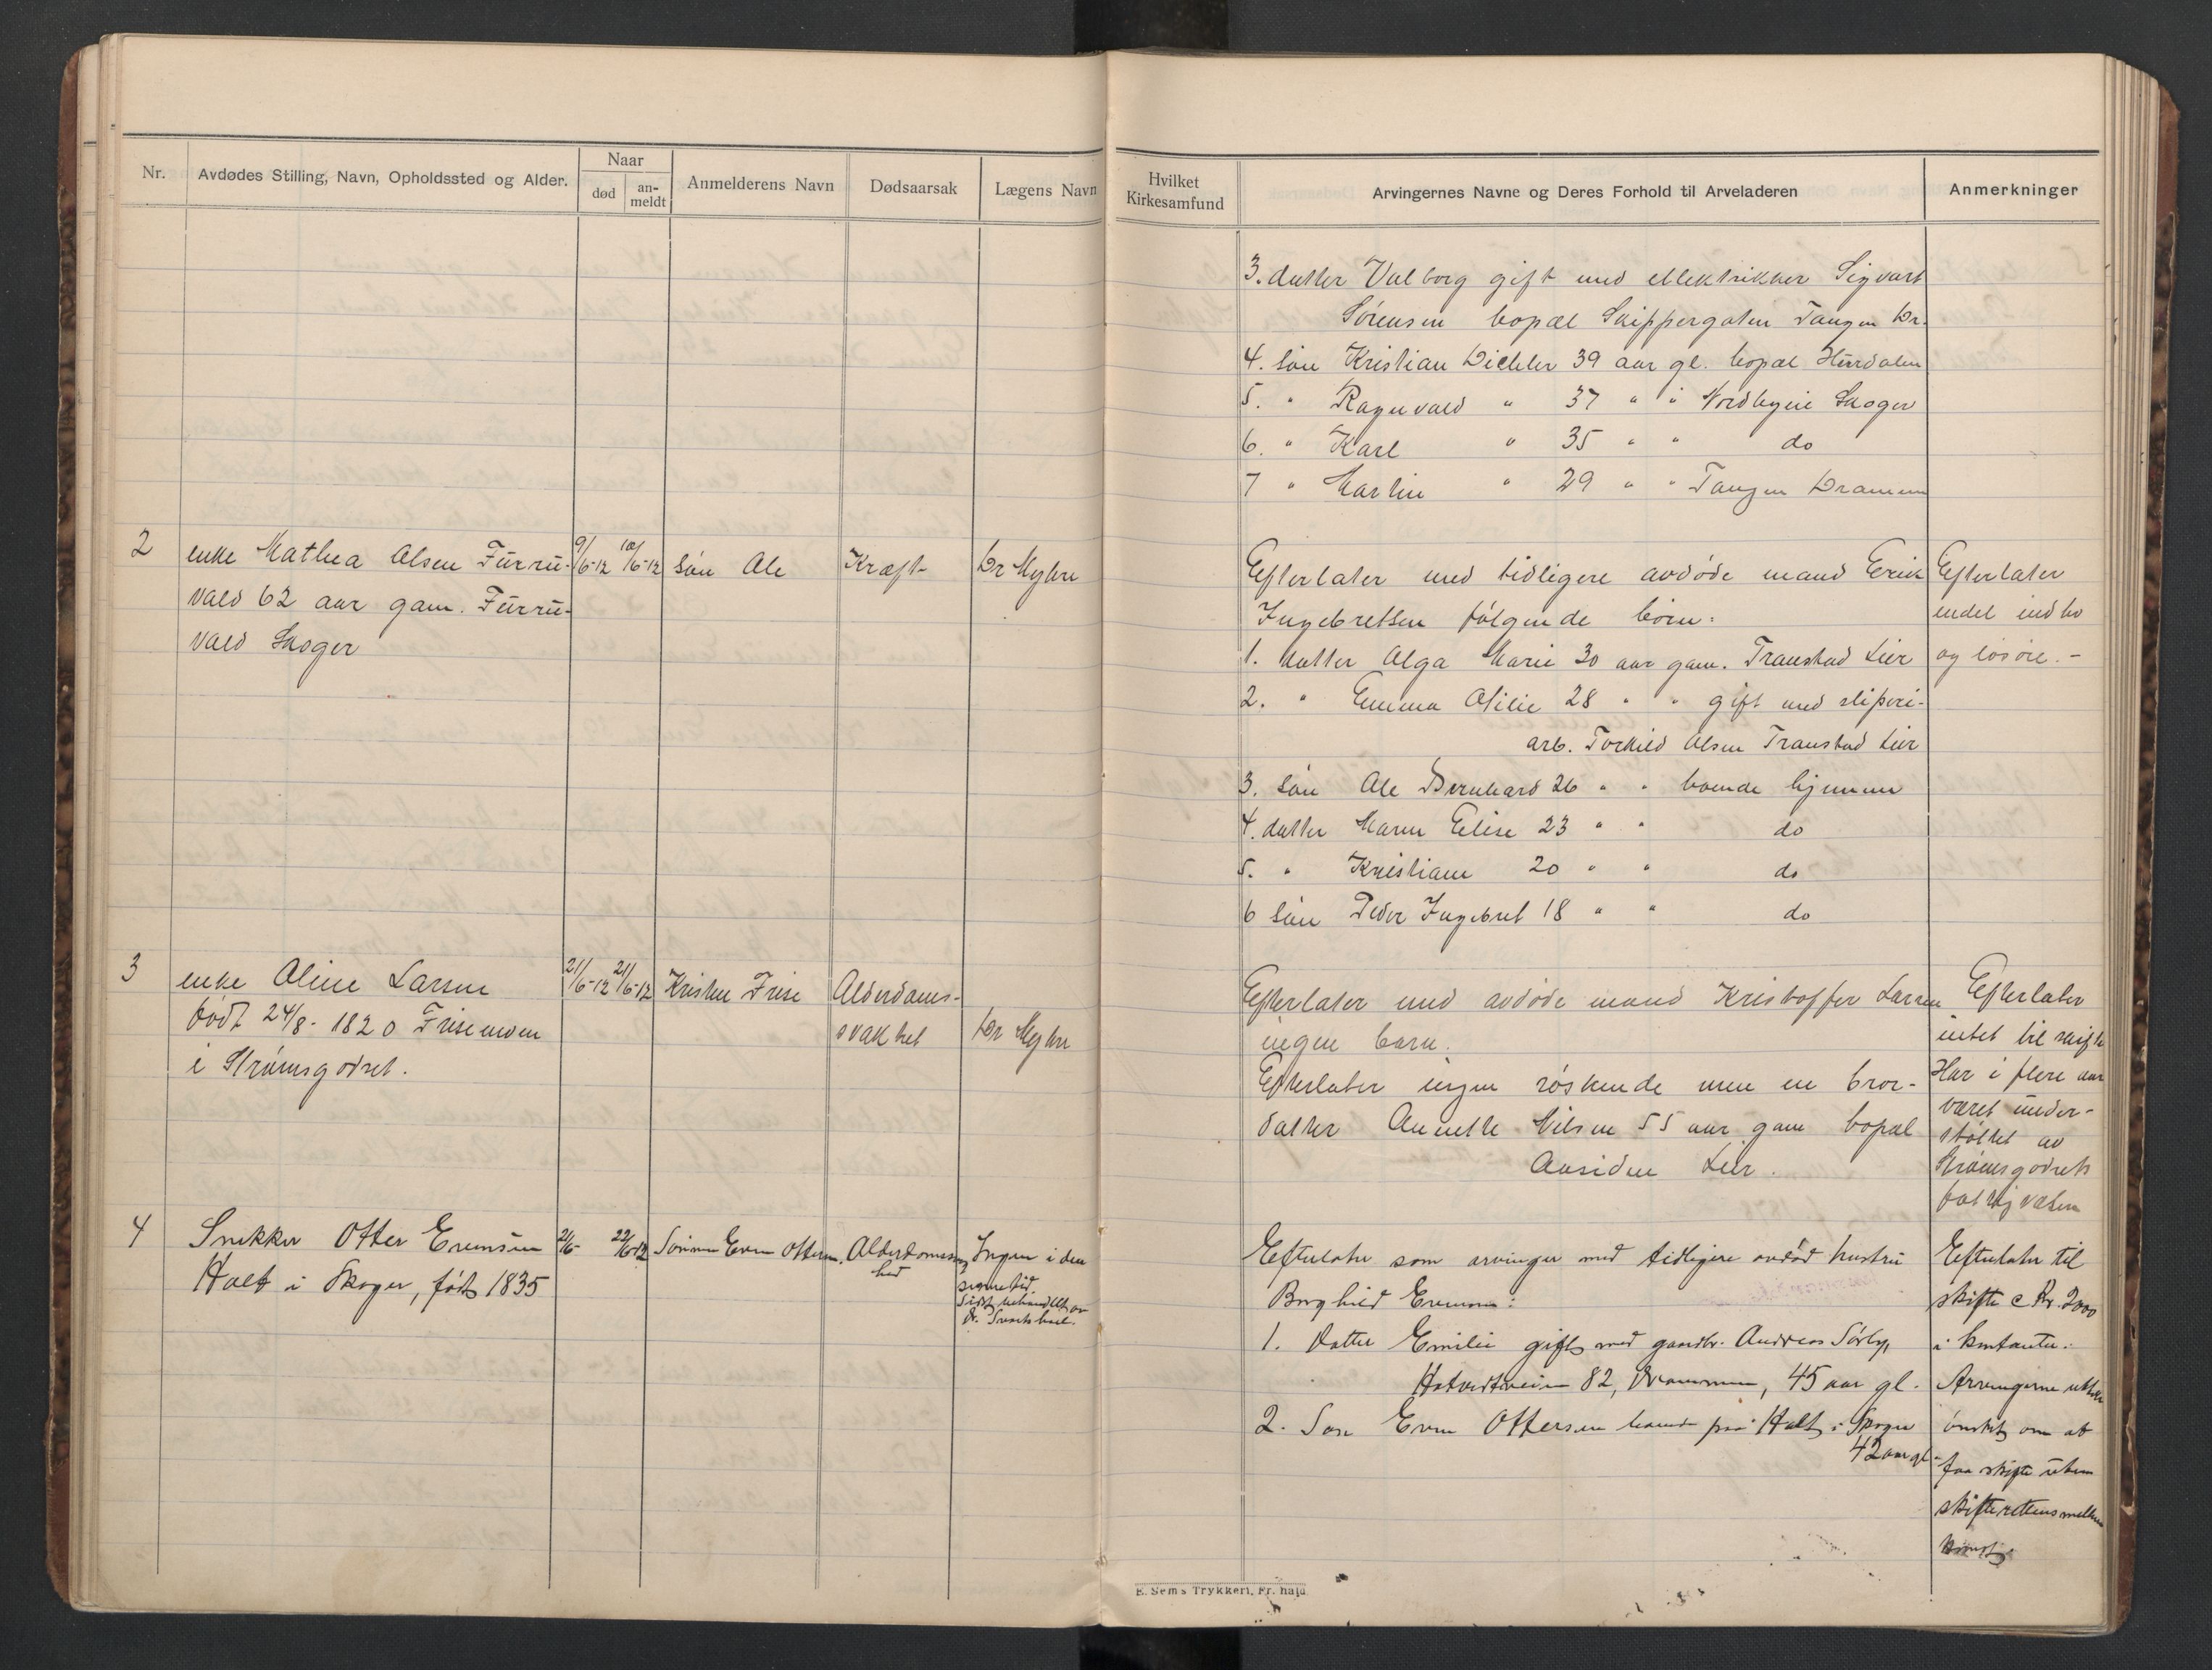 Nr.
Avdødes Stilling, Navn, Opholdssted og Alder.
Naar
død
an-
meldt
Anmelderens Navn
Dødsaarsak
Lægens Navn
Hvilket
Kirkesamfund
Arvingernes Navne og Deres Forhold til Arveladeren
Anmerkninger
3. datter Valborg gift med ellektriker Sigvart
Sørensen bopæl Skippergaten Tangen Dr.
4. søn Kristian Dichler 39 aar gl. bopæl Hurdalen
5. " Ragnvald " 37 " " Nordbyeie Skoger
6. " Karl " 35 " " do
7 " Martin " 29 " " Tangen Drammen
2
enke Mathea Olsen Furru-
vald 62 aar gam. Furru-
vald Skoger
9/6-12
10/6-12
søn Ole
Kræft
Dr Myhre
Efterlater med tidligere avdøde mand Erik
Ingebretsen følgende børn:
1. datter Olga Marie 30 aar gam. Franstad Lier
2. " Emma Otilie 28 " " gift med sliperi-
arb. Torkild Olsen Franstad Lier
3. søn Ole Bernhard 26 " " boende hjemme
4. datter Maren Elise 23 " " do
5. " Kristiane 20 " " do
6 søn Peder Ingebret 18 " " do
Efterlater
endel indbo
og løsøre.-
3
enke Oline Larsen
født 24/8-1820 Frisenmoen
i Strømsgodset.
21/6-12
21/6-12
Kristen Frise
Alderdoms-
svakhet
Dr Myhre
Efterlater med avdøde mand Kristoffer Larsen
ingen barn.
Efterlater ingen søskende men en bror-
datter Annette Nilsen 55 aar gam bopæl
Aasiden Lier.
Efterlater
intet til skifte
Har i flere aar
været under-
støttet av
Strømsgodsets
fattigvæsen
4
Snekker Otter Evensen
Halt i Skoger, født 1835
21/6-
22/6-12
Sønnen Even Ottersen.
Alderdomssvag-
hed
Ingen i den
senere tid.
Sidst behandlet av
Dr.
Efterlater som arvinger med tidligere avdød hustru
Borghild Evensen:
1. Datter Emilie gift med gaardbr. Andreas Sørby,
Hotvedtveien 82, Drammen, 45 aar gl.
2. Søn Even Ottersen boende paa Halt i Skoger
42 aar gl.
Efterlater til
skifte c Kr. 2000
i kontanter.
Arvingerne uttaler
ønsket om at
faa skifte uten
skifterettens mellem
komst.
E. Sems Trykkeri, Fr. hald